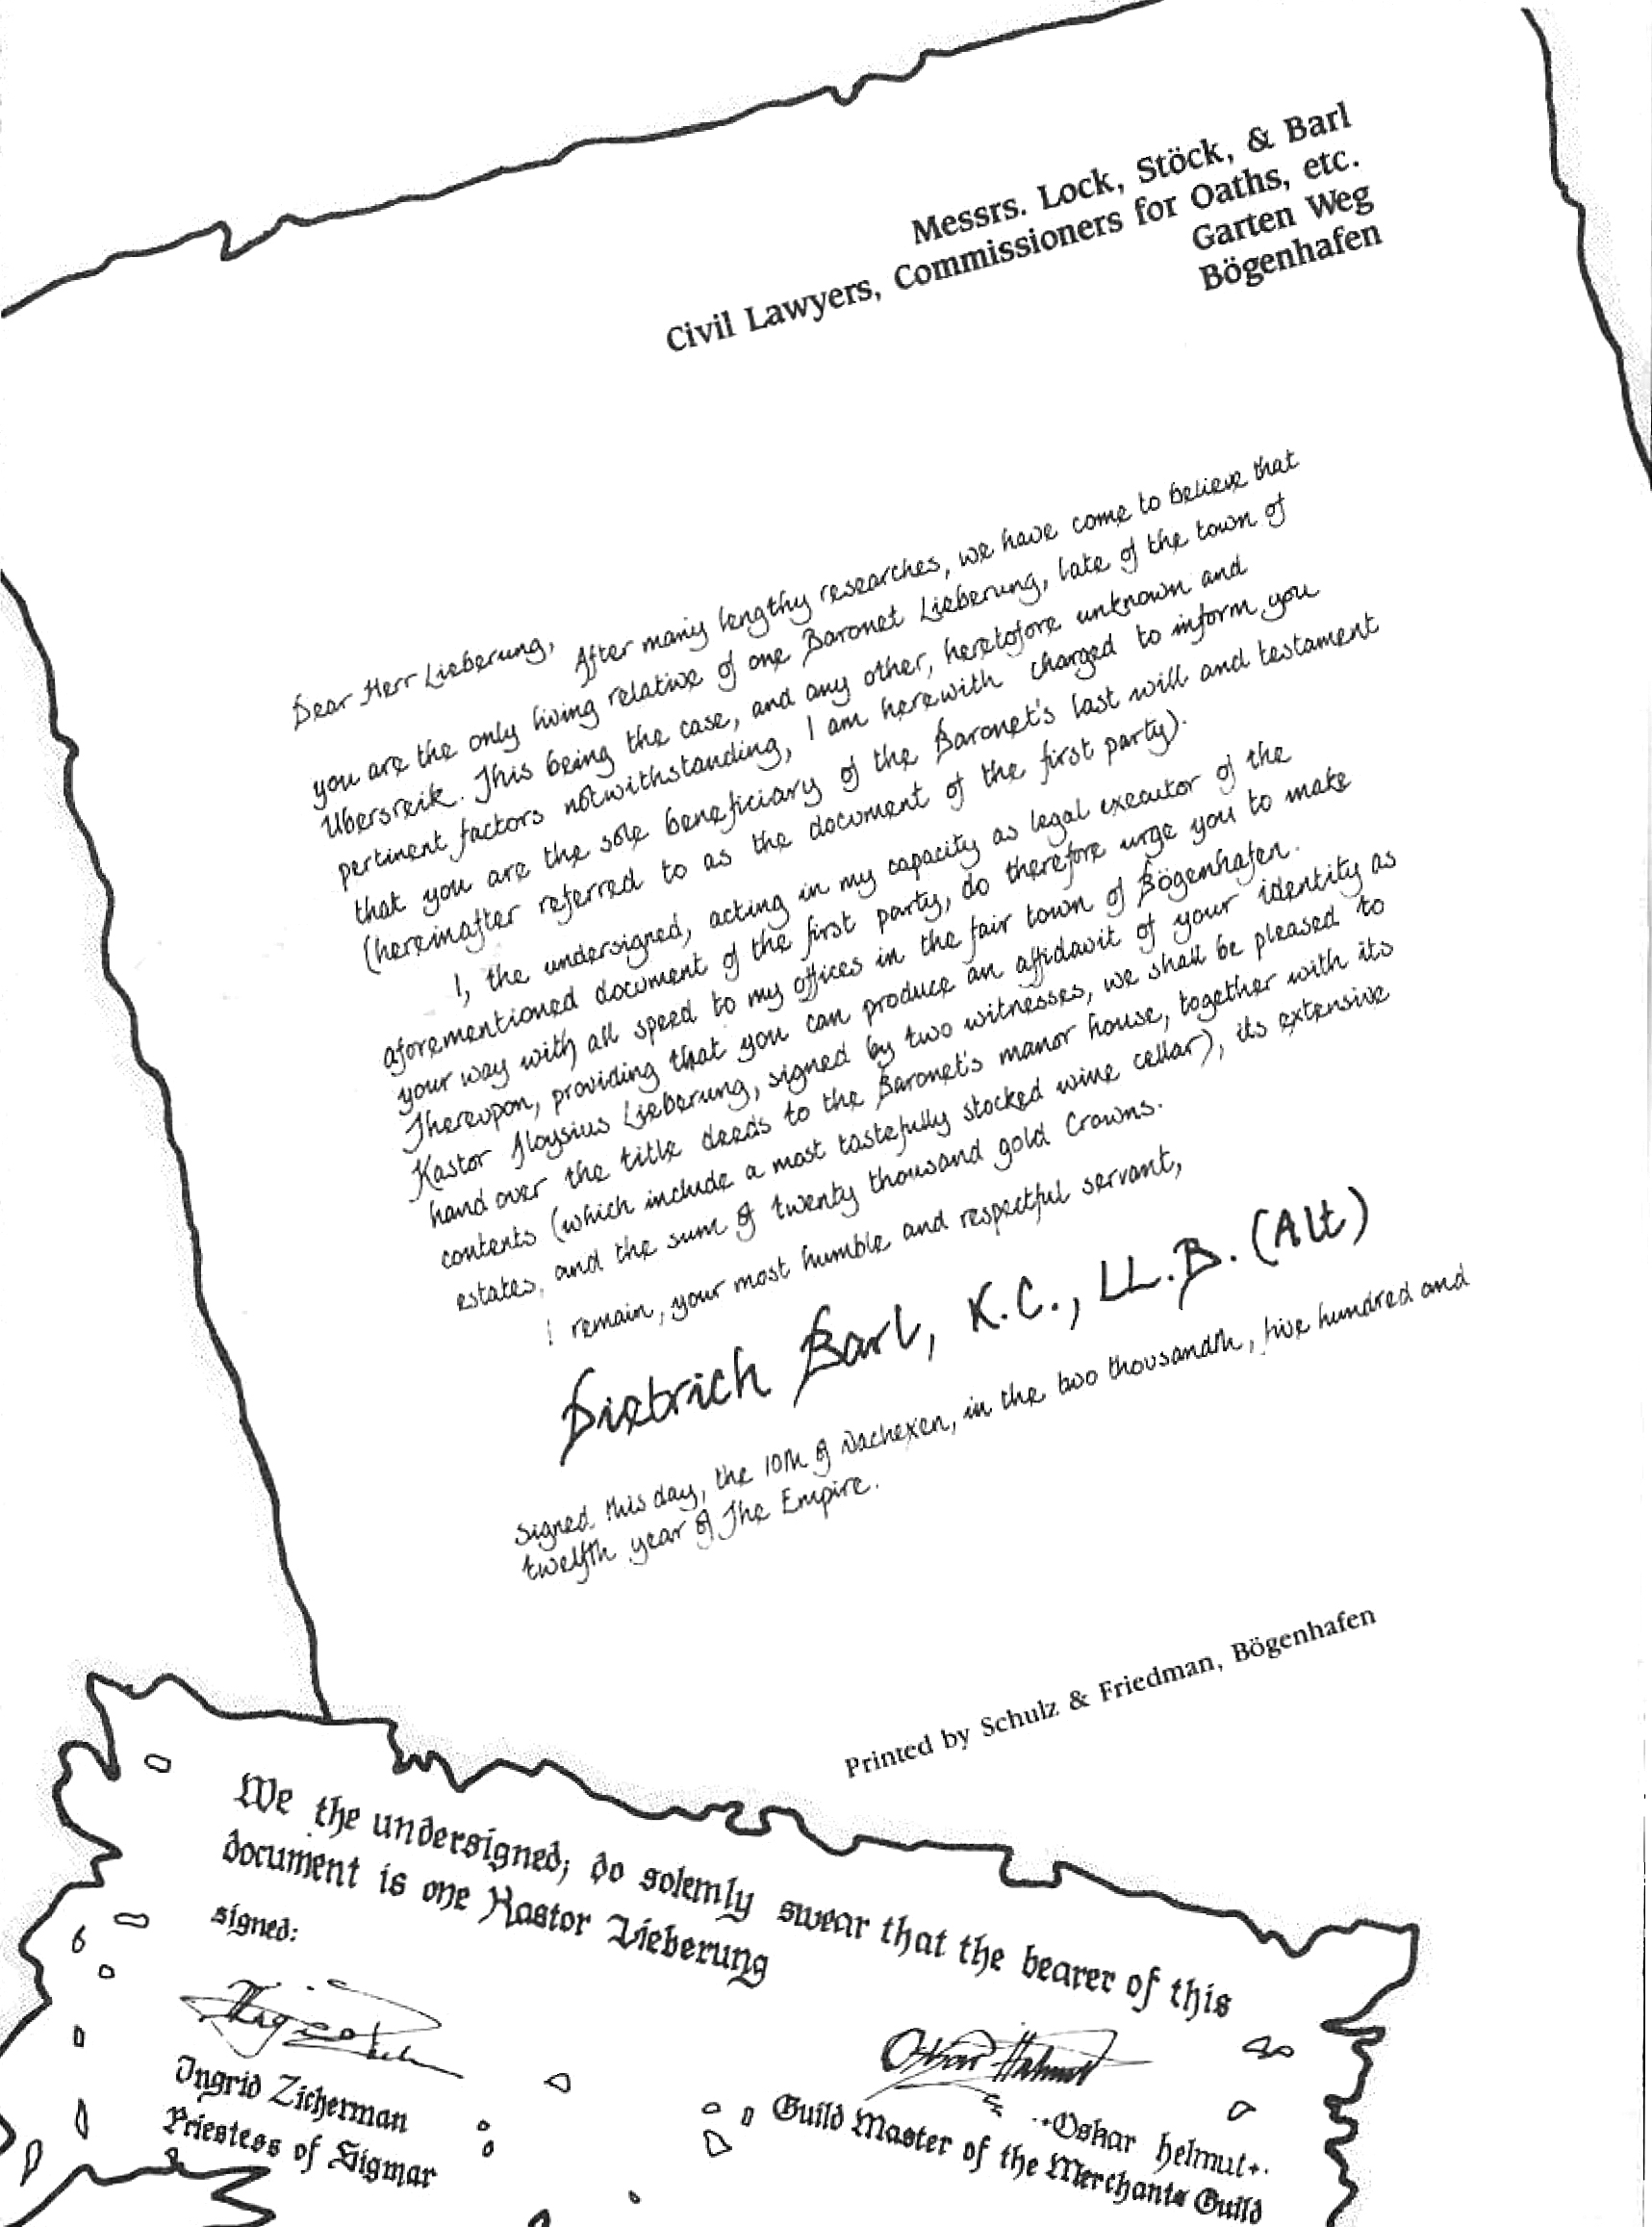 Messrs. Lock, Stöck, & Barl
Civil Lawyers, Commissioners for Oaths, etc.
Garten Weg
Bögenhafen
Dear Herr Lieberung,
After many lengthy researches, we have come to believe that
you are the only living relative of one Baronet Lieberung, late of the town of
Ubersreik. This being the case, and any other, heretofore unknown and
pertinent factors notwithstanding, I am herewith charged to inform you
that you are the sole beneficiary of the Baronet's last will and testament
(hereinafter referred to as the document of the first party).
I, the undersigned, acting in my capacity as legal executor of the
aforementioned document of the first party, do therefore urge you to make
your way with all speed to my offices in the fair town of Bögenhafen.
Thereupon, providing that you can produce an affidavit of your identity as
Kastor Aloysius Lieberung, signed by two witnesses, we shall be pleased to
hand over the title deeds to the Baronet's manor house, together with its
contents (which include a most tastefully stocked wine cellar), its extensive
estates, and the sum of twenty thousand gold Crowns.
I remain, your most humble and respectful servant,
Dietrich Barl, K.C., LL.B. (Alt)
Signed this day, the 10th of Nachexen, in the two thousandth, five hundred and
twelfth year of The Empire.
Printed by Schulz & Friedman, Bögenhafen
We the undersigned; do solemly swear that the bearer of this
document is one Kastor Lieberung
signed:
Oskar Helmut
Ingrid Zicherman
Priestess of Sigmar
Oskar helmut
Guild Master of the Merchants Guild